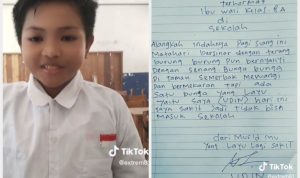 terhormat
Ibu wali kelas. 8A
di
sekolah
Alangkah indahnya pagi siang ini
Matahari bersinar dengan terang
burung burung pun bernyanyi
Dengan senang bunga bunga
Di taman semerbak mewangi
Dan bermekaran tapi ada
satu bunga yang layu
yaitu saya (UDIN) hari ini
saya sakit jadi tidak bisa
masuk sekolah
dari murid mu
yang layu lagi sakit
TikTok
@extrem01
TikTok
@extrem